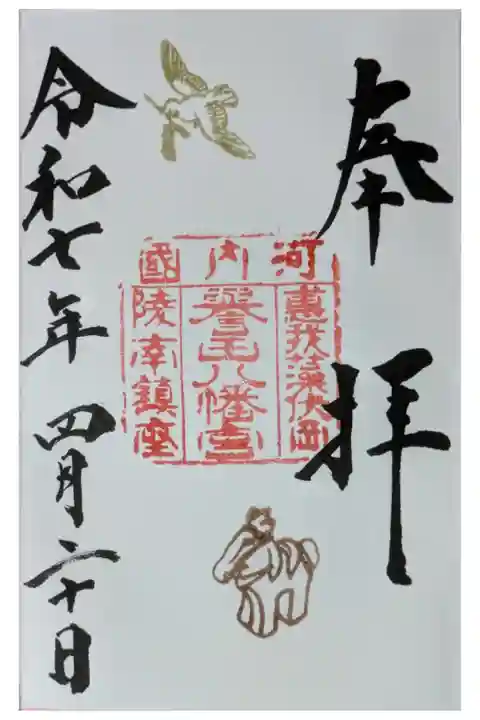 奉拝
河内國
惠我藻伏岡
譽田八幡宮
陵南鎮座
令和七年 四月二十日